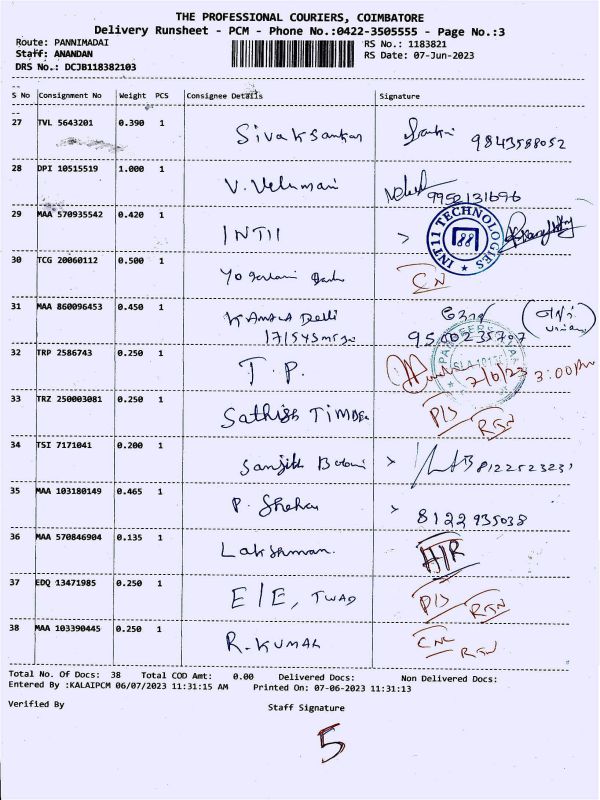 THE PROFESSIONAL COURIERS, COIMBATORE
Delivery Runsheet - PCM - Phone No.:0422-3505555 - Page No.:3
Route: PANNIMADAI RS No.: 1183821
Staff: ANANDAN RS Date: 07-Jun-2023
DRS No.: DCJB118382103
S No Consignment No Weight PCS Consignee Details Signature
27 TVL 5643201 0.390 1 Sivaksankar 9843588052
28 DPI 10515519 1.000 1 V. Velumani 9952131696
29 MAA 570935542 0.420 1 INTII > INT11 TECHNOLOGIES
30 TCG 20060112 0.500 1 CN
31 MAA 860096453 0.450 1 KAMALA Delli 9500235797
32 TRP 2586743 0.250 1 T.P. 7/6/23 3:00 Pm
33 TRZ 250003081 0.250 1 Sathish P/S RGN
34 TSI 7171041 0.200 1 Sanjith >
35 MAA 103180149 0.465 1 P. Shekar > 8122 935038
36 MAA 570846904 0.135 1 Lakshman. H/R
37 EDQ 13471985 0.250 1 E/E, TWAD P/S RGN
38 MAA 103390445 0.250 1 R. KUMAR RGN
Total No. Of Docs: 38 Total COD Amt: 0.00 Delivered Docs: Non Delivered Docs:
Entered By :KALAIPCM 06/07/2023 11:31:15 AM Printed On: 07-06-2023 11:31:13
Verified By Staff Signature
5